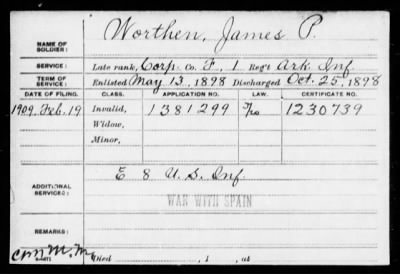 NAME OF SOLDIER: Worthen, James P.
SERVICE: Late rank, Corp. Co. F, 1 Reg't Ark. Inf.
TERM OF SERVICE: Enlisted May 13, 1898 Discharged Oct. 25, 1898
DATE OF FILING. CLASS. APPLICATION NO. LAW. CERTIFICATE NO.
1909, Feb. 19 Invalid, 1381299 1230739
Widow,
Minor,
ADDITIONAL SERVICES: E 8 U.S. Inf
WAR WITH SPAIN
REMARKS:
Died , 1 , at